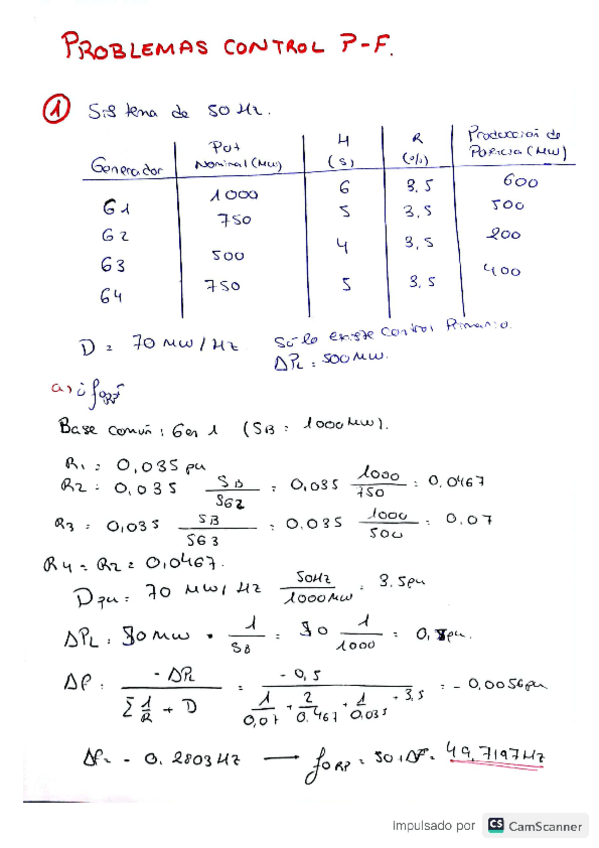 PROBLEMAS CONTROL P-F.
① Sistema de 50 Hz.
Generador Pot Nominal (MW) H (s) R (%) Producción de Potencia (MW)
G1 1000 6 3.5 600
G2 750 5 3,5 500
G3 500 4 3,5 200
G4 750 5 3.5 400
D = 70 MW/Hz Sólo existe control Primario.
ΔPL = 500 MW.
a)
Base común: Gen 1 (SB = 1000 MW).
R1 = 0,035 pu
R2 = 0,035 SB/SG2 = 0,035 1000/750 = 0,0467
R3 = 0,035 SB/SG3 = 0,035 1000/500 = 0,07
R4 = R2 = 0,0467.
Dpu = 70 MW/Hz 50Hz/1000MW = 3.5pu
ΔPL = MW · 1/SB = 1/1000 = pu.
Δf = -ΔPL / Σ 1/R + D = -0,5 / 1/0,07 + 2/0.467 + 1/0,035 + 3,5 = -0,0056pu
Δf = -0.2803 Hz → fORP = 50+Δf = 49,7197Hz
Impulsado por CS CamScanner